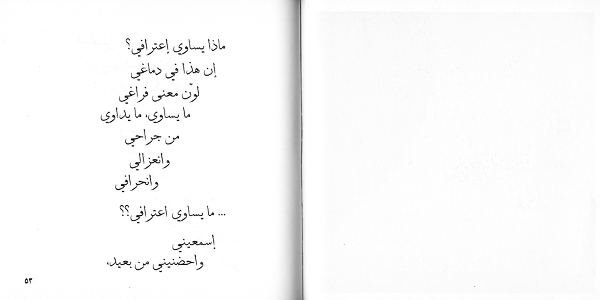 ماذا يساوي إعترافي؟
إن هذا في دماغي
لوّن معنى فراغي
ما يساوي، ما يداوي
من جراحي
وانعزالي
وانحرافي
... ما يساوي اعترافي؟؟
إسمعيني
واحضنيني من بعيد،
٥٣